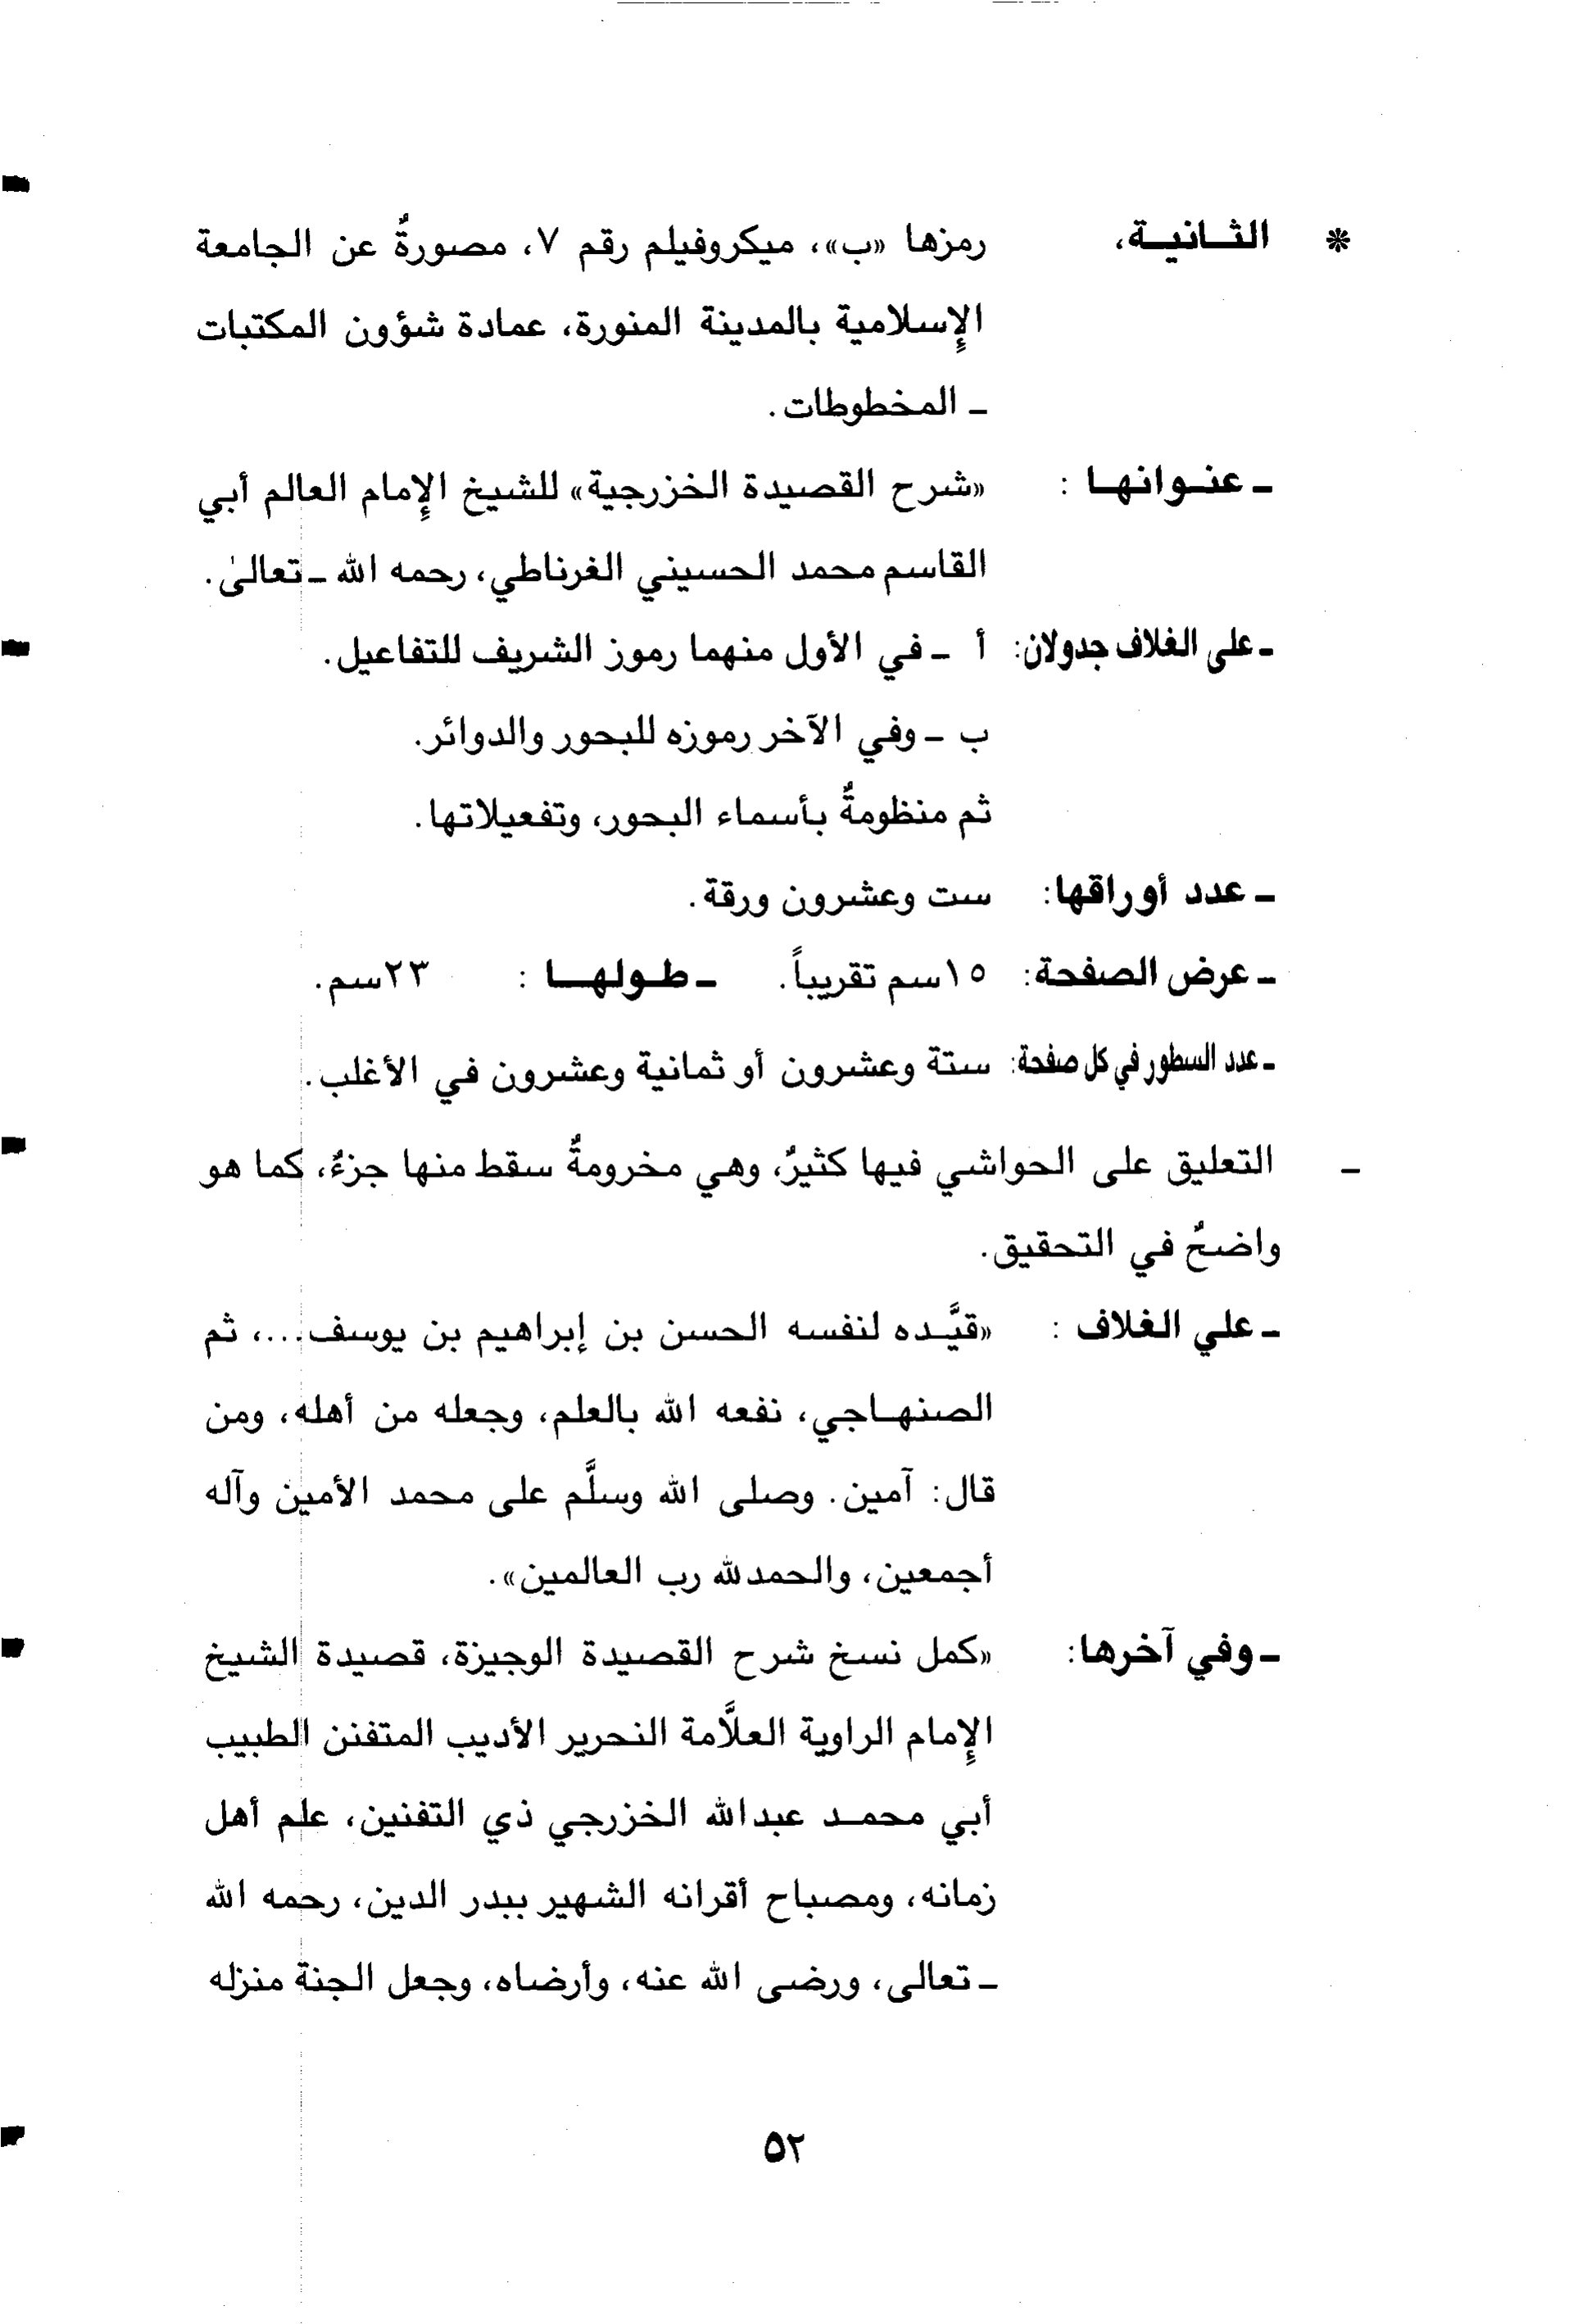 * الثانية، رمزها «ب»، ميكروفيلم رقم ٧، مصورةٌ عن الجامعة
الإسلامية بالمدينة المنورة، عمادة شؤون المكتبات
ـ المخطوطات.
ـ عنوانها : «شرح القصيدة الخزرجية» للشيخ الإمام العالم أبي
القاسم محمد الحسيني الغرناطي، رحمه الله ـ تعالىٰ.
ـ على الغلاف جدولان: أ ـ في الأول منهما رموز الشريف للتفاعيل.
ب ـ وفي الآخر رموزه للبحور والدوائر.
ثم منظومةٌ بأسماء البحور، وتفعيلاتها.
ـ عدد أوراقها: ست وعشرون ورقة.
ـ عرض الصفحة: ١٥سم تقريباً. ـ طولها : ٢٣سم.
ـ عدد السطور في كل صفحة: ستة وعشرون أو ثمانية وعشرون في الأغلب.
ـ التعليق على الحواشي فيها كثيرٌ، وهي مخرومةٌ سقط منها جزءٌ، كما هو
واضحٌ في التحقيق.
ـ علي الغلاف : «قيَّده لنفسه الحسن بن إبراهيم بن يوسف...، ثم
الصنهاجي، نفعه الله بالعلم، وجعله من أهله، ومن
قال: آمين. وصلى الله وسلَّم على محمد الأمين وآله
أجمعين، والحمدلله رب العالمين».
ـ وفي آخرها: «كمل نسخ شرح القصيدة الوجيزة، قصيدة الشيخ
الإمام الراوية العلاَّمة النحرير الأديب المتفنن الطبيب
أبي محمد عبدالله الخزرجي ذي التفنين، علم أهل
زمانه، ومصباح أقرانه الشهير ببدر الدين، رحمه الله
ـ تعالى، ورضى الله عنه، وأرضاه، وجعل الجنة منزله
٥٢